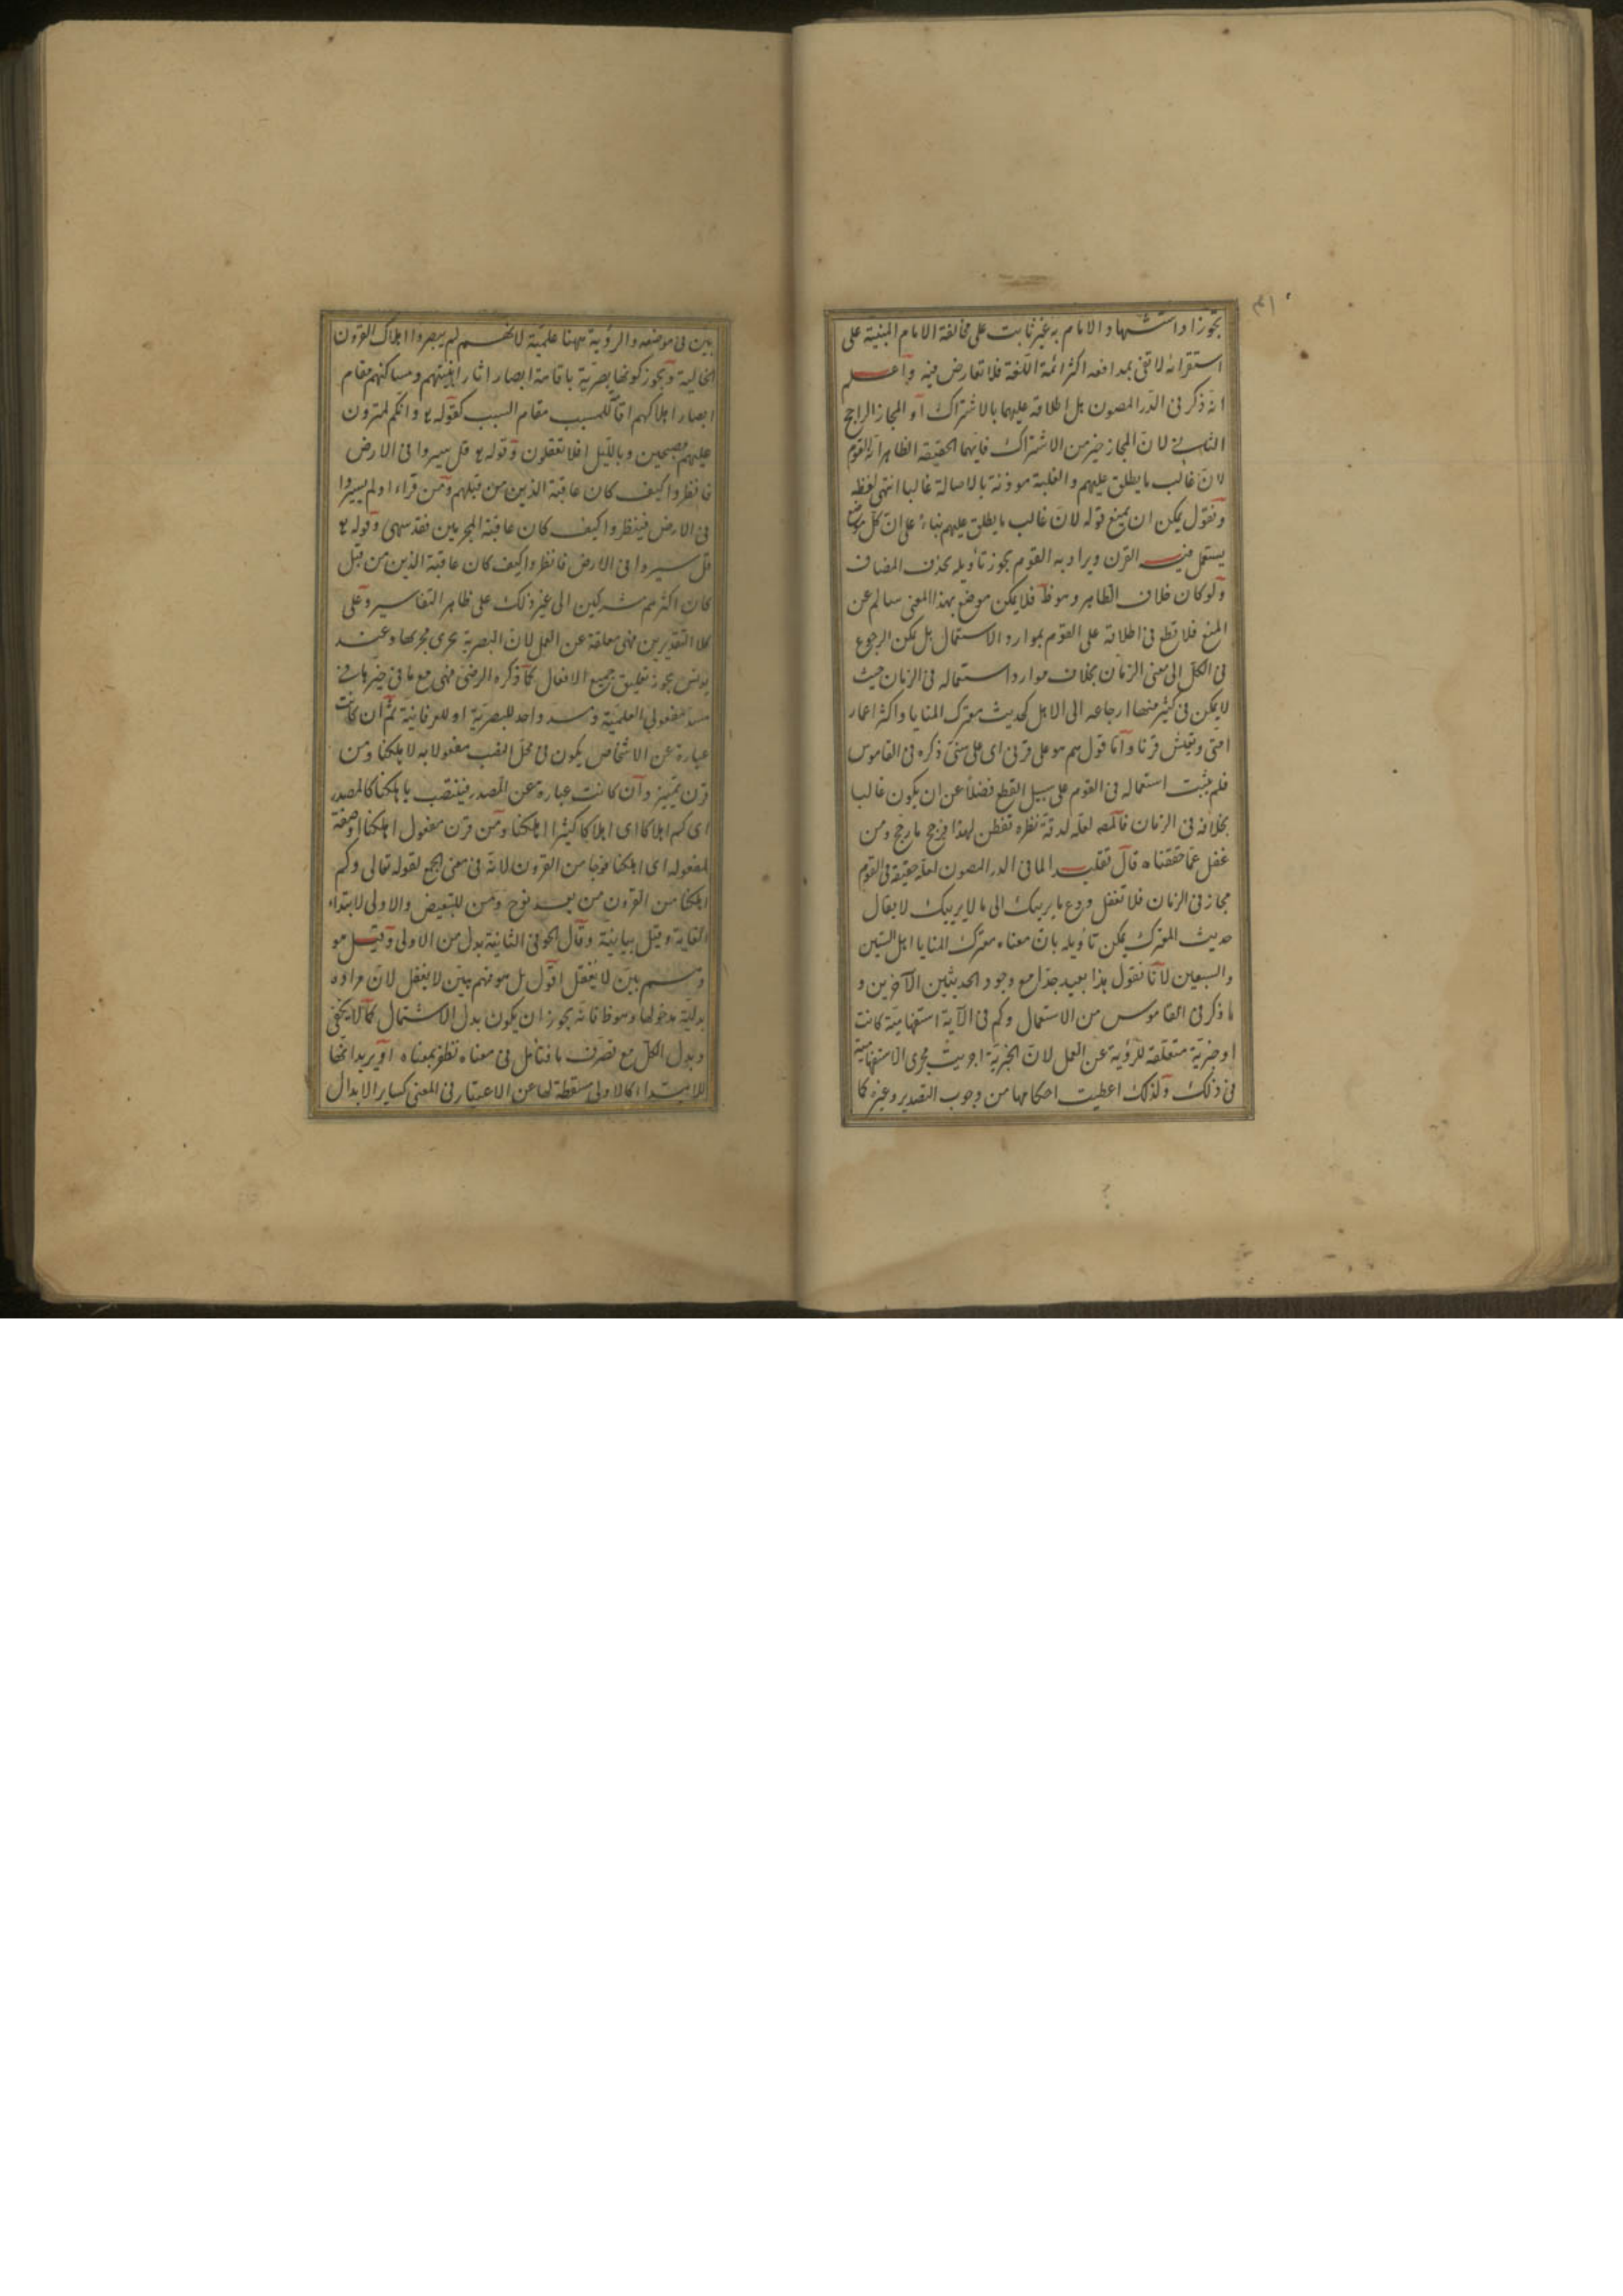 تجوزا واستشهاد الامام به غير ثابت على مخالفة الامام المبنية على
استقرائه لا تفى بمدافعه اكثر ائمة اللغة فلا تعارض فيه واعلم
انه ذكر فى الدر المصون بل اطلاقه عليهما بالاشتراك او المجاز الراجح
الثانى لان المجاز خير من الاشتراك فايهما الحقيقة الظاهر انه القوم
لان غالب ما يطلق عليهم والغلبة موذنة بالاصالة غالبا انتهى لفظه
ونقول يمكن ان يمنع قوله لان غالب ما يطلق عليهم بناء على ان كل موضع
يستعمل فيه القرن ويراد به القوم يجوز تأويله بحذف المضاف
ولو كان خلاف الظاهر وهو ظ فلا يمكن موضع بهذا المعنى سالم عن
المنع فلا قطع فى اطلاقه على القوم بموارد الاستعمال بل يمكن الرجوع
فى الكل الى معنى الزمان بخلاف موارد استعماله فى الزمان حيث
لا يمكن فى كثير منها ارجاعه الى الاهل كحديث معترك المنايا واكثر اعمار
امتى ويعيش قرنا واما قولهم هو على قرنى اى على سنى ذكره فى القاموس
فلم يثبت استعماله فى القوم على سبيل القطع فضلا عن ان يكون غالبا
بخلافه فى الزمان فالمص لعله لدقة نظره تفطن لهذا فرجح ما رجح ومن
غفل عما حققناه قال فقلب لما فى الدر المصون لعله حقيقة فى القوم
مجاز فى الزمان فلا تغفل ودع ما يريبك الى ما لا يريبك لا يقال
حديث المعترك يمكن تأويله بان معناه معترك المنايا اهل الستين
والسبعين لانا نقول هذا بعيد جدا مع وجود الحديثين الآخرين و
ما ذكر فى القاموس من الاستعمال وكم فى الآية استفهامية كانت
او خبرية متعلقة للرؤية عن العمل لان الخبرية اجريت مجرى الاستفهامية
فى ذلك ولذلك اعطيت احكامها من وجوب التصدير وغيره كما
بين فى موضعه والرؤية ههنا علمية لانهم لم يبصروا اهلاك القرون
الخالية ويجوز كونها بصرية باقامة ابصار اثار ابنيتهم ومساكنهم مقام
ابصار اهلاكهم اقامة للمسبب مقام السبب كقوله تع وانكم لتمرون
عليهم مصبحين وبالليل افلا تعقلون وقوله تع قل سيروا فى الارض
فانظروا كيف كان عاقبة الذين من قبلهم ومن قراء اولم يسيروا
فى الارض فينظروا كيف كان عاقبة المجرمين فقد سهى وقوله تع
قل سيروا فى الارض فانظروا كيف كان عاقبة الذين من قبل
كان اكثرهم مشركين الى غير ذلك على ظاهر التفاسير وعلى
كلا التقديرين فهى معلقة عن العمل لان البصرية تجرى مجريها وعند
يونس يجوز تعليق جميع الافعال كما ذكره الرضى فهى مع ما فى حيزها فى
مسد مفعولى العلمية ومسد واحد للبصرية او للعرفانية ثم ان كانت
عبارة عن الاشخاص يكون فى محل النصب مفعولا به لاهلكنا ومن
قرن تمييز وان كانت عبارة عن المصدر فينتصب باهلكنا كالمصدر
اى كم اهلاكا اى اهلاكا كثيرا اهلكنا ومن قرن مفعول اهلكنا او صفة
لمفعوله اى اهلكنا فوجا من القرون لانه فى معنى الجمع لقوله تعالى وكم
اهلكنا من القرون من بعد نوح ومن للتبعيض والاولى لابتداء
الغاية وقيل بيانية وقال الحوفى الثانية بدل من الاولى وقيل هو
وهم بين لا يغفل اقول بل هو منهم بين لا يغفل لان مراده
بدلية مدخولها وهو ظ فانه يجوز ان يكون بدل الاشتمال كما لا يخفى
وبدل الكل مع تصرف ما فتأمل فى معناه تظفر بمعناه او يريد انها
للابتداء كالاولى مسقطة لها عن الاعتبار فى المعنى كساير الابدال